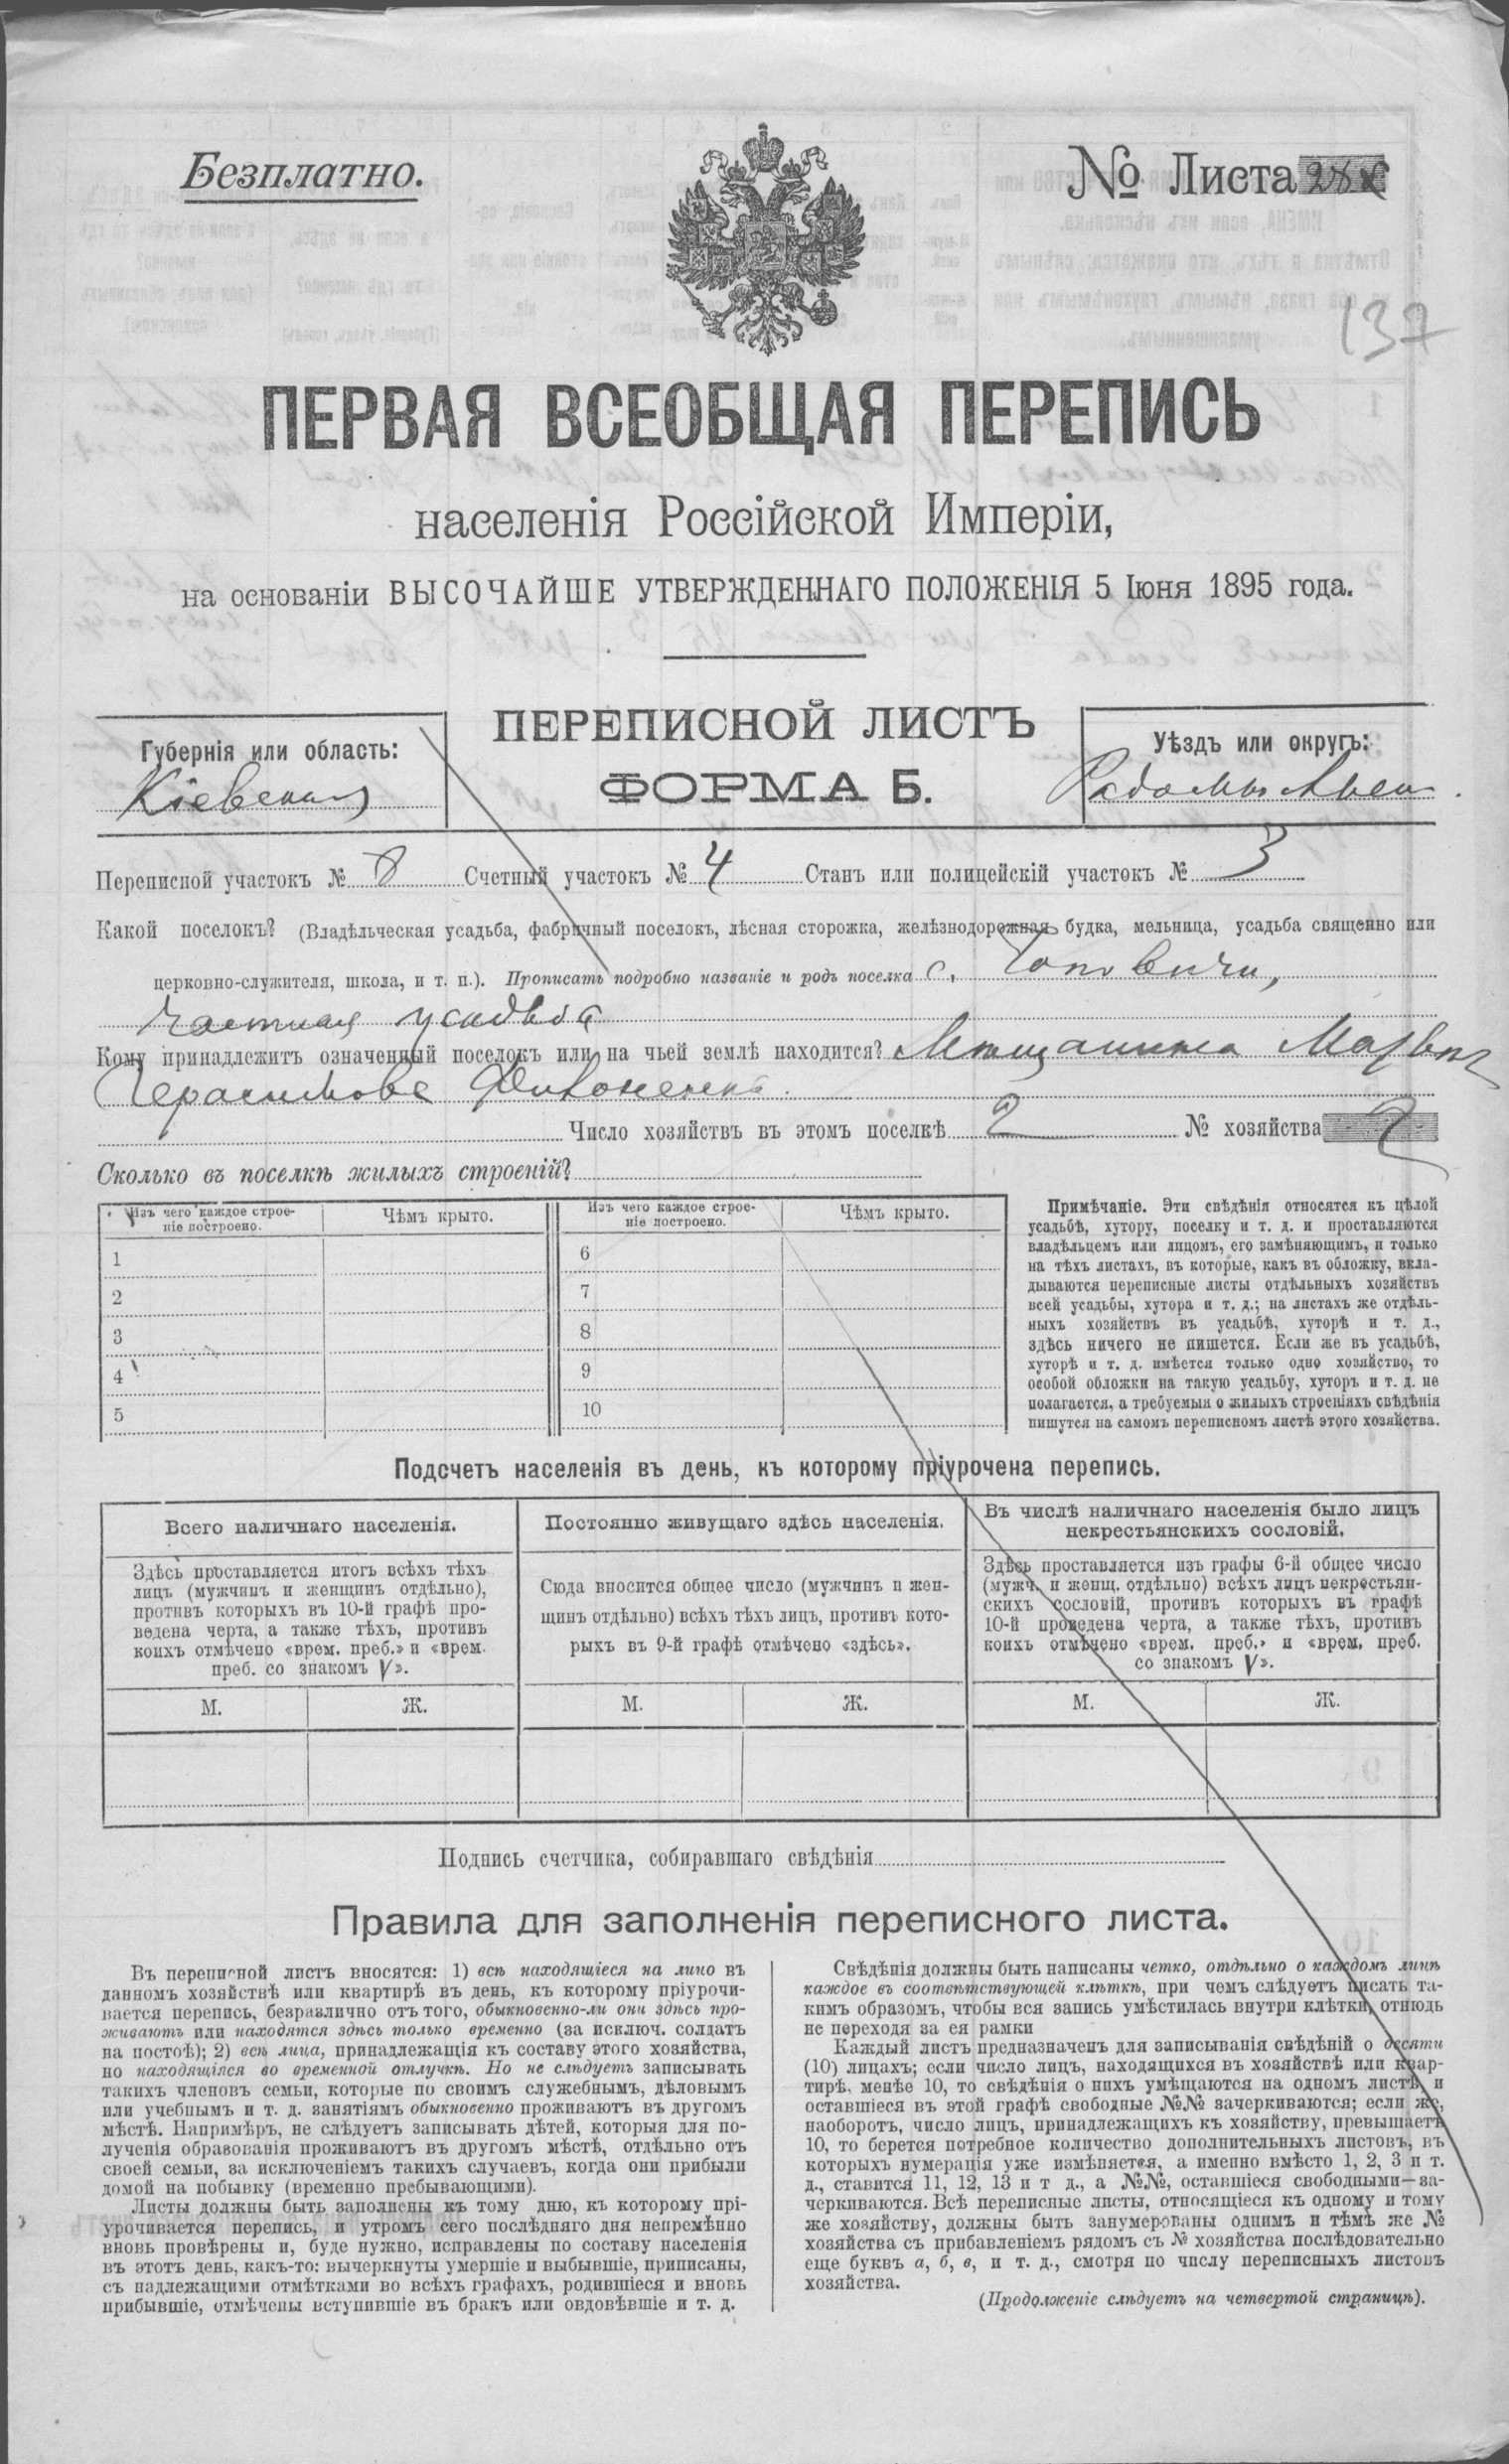 Безплатно.
№ Листа
137
ПЕРВАЯ ВСЕОБЩАЯ ПЕРЕПИСЬ
населенія Россійской Имперіи,
на основаніи ВЫСОЧАЙШЕ УТВЕРЖДЕННАГО ПОЛОЖЕНІЯ 5 Іюня 1895 года.
ПЕРЕПИСНОЙ ЛИСТЪ
ФОРМА Б.
Губернія или область:
Кіевская
Уѣздъ или округъ:
Радомысльск.
Переписной участокъ № 8 Счетный участокъ № 4 Станъ или полицейскій участокъ № 3
Какой поселокъ? (Владѣльческая усадьба, фабричный поселокъ, лѣсная сторожка, желѣзнодорожная будка, мельница, усадьба священно или
церковно-служителя, школа, и т. п.). Прописать подробно названіе и родъ поселка с. Чоповичи,
частная усадьба
Кому принадлежитъ означенный поселокъ или на чьей землѣ находится?
Число хозяйствъ въ этомъ поселкѣ 2 № хозяйства 2
Сколько въ поселкѣ жилыхъ строеній?
Изъ чего каждое строе-
ніе построено.
Чѣмъ крыто.
Изъ чего каждое строе-
ніе построено.
Чѣмъ крыто.
1
2
3
4
5
6
7
8
9
10
Примѣчаніе. Эти свѣдѣнія относятся къ цѣлой
усадьбѣ, хутору, поселку и т. д. и проставляются
владѣльцемъ или лицомъ, его замѣняющимъ, и только
на тѣхъ листахъ, въ которые, какъ въ обложку, вкла-
дываются переписные листы отдѣльныхъ хозяйствъ
всей усадьбы, хутора и т. д.; на листахъ же отдѣль-
ныхъ хозяйствъ въ усадьбѣ, хуторѣ и т. д.,
здѣсь ничего не пишется. Если же въ усадьбѣ,
хуторѣ и т. д. имѣется только одно хозяйство, то
особой обложки на такую усадьбу, хуторъ и т. д. не
полагается, а требуемыя о жилыхъ строеніяхъ свѣдѣнія
пишутся на самомъ переписномъ листѣ этого хозяйства.
Подсчетъ населенія въ день, къ которому пріурочена перепись.
Всего наличнаго населенія.
Здѣсь проставляется итогъ всѣхъ тѣхъ
лицъ (мужчинъ и женщинъ отдѣльно),
противъ которыхъ въ 10-й графѣ про-
ведена черта, а также тѣхъ, противъ
коихъ отмѣчено «врем. преб.» и «врем.
преб. со знакомъ V».
М. Ж.
Постоянно живущаго здѣсь населенія.
Сюда вносится общее число (мужчинъ и жен-
щинъ отдѣльно) всѣхъ тѣхъ лицъ, противъ кото-
рыхъ въ 9-й графѣ отмѣчено «здѣсь».
М. Ж.
Въ числѣ наличнаго населенія было лицъ
некрестьянскихъ сословій.
Здѣсь проставляется изъ графы 6-й общее число
(мужч. и женщ. отдѣльно) всѣхъ лицъ некрестьян-
скихъ сословій, противъ которыхъ въ графѣ
10-й проведена черта, а также тѣхъ, противъ
коихъ отмѣчено «врем. преб.» и «врем. преб.
со знакомъ V».
М. Ж.
Подпись счетчика, собиравшаго свѣдѣнія
Правила для заполненія переписного листа.
Въ переписной листъ вносятся: 1) всѣ находящіеся на лицо въ
данномъ хозяйствѣ или квартирѣ въ день, къ которому пріурочи-
вается перепись, безразлично отъ того, обыкновенно-ли они здѣсь про-
живаютъ или находятся здѣсь только временно (за исключ. солдатъ
на постоѣ); 2) всѣ лица, принадлежащія къ составу этого хозяйства,
но находящіяся во временной отлучкѣ. Но не слѣдуетъ записывать
такихъ членовъ семьи, которые по своимъ служебнымъ, дѣловымъ
или учебнымъ и т. д. занятіямъ обыкновенно проживаютъ въ другомъ
мѣстѣ. Напримѣръ, не слѣдуетъ записывать дѣтей, которыя для по-
лученія образованія проживаютъ въ другомъ мѣстѣ, отдѣльно отъ
своей семьи, за исключеніемъ такихъ случаевъ, когда они прибыли
домой на побывку (временно пребывающими).
Листы должны быть заполнены къ тому дню, къ которому прі-
урочивается перепись, и утромъ сего послѣдняго дня непремѣнно
вновь провѣрены и, буде нужно, исправлены по составу населенія
въ этотъ день, какъ-то: вычеркнуты умершіе и выбывшіе, приписаны,
съ надлежащими отмѣтками во всѣхъ графахъ, родившіеся и вновь
прибывшіе, отмѣчены вступившіе въ бракъ или овдовѣвшіе и т. д.
Свѣдѣнія должны быть написаны четко, отдѣльно о каждомъ лицѣ
каждое въ соотвѣтствующей клѣткѣ, при чемъ слѣдуетъ писать та-
кимъ образомъ, чтобы вся запись умѣстилась внутри клѣтки, отнюдь
не переходя за ея рамки
Каждый листъ предназначенъ для записыванія свѣдѣній о десяти
(10) лицахъ; если число лицъ, находящихся въ хозяйствѣ или квар-
тирѣ, менѣе 10, то свѣдѣнія о нихъ умѣщаются на одномъ листѣ, и
оставшіеся въ этой графѣ свободные №№ зачеркиваются; если же,
наоборотъ, число лицъ, принадлежащихъ къ хозяйству, превышаетъ
10, то берется потребное количество дополнительныхъ листовъ, въ
которыхъ нумерація уже измѣняется, а именно вмѣсто 1, 2, 3 и т.
д., ставится 11, 12, 13 и т д., а №№, оставшіеся свободными—за-
черкиваются. Всѣ переписные листы, относящіеся къ одному и тому
же хозяйству, должны быть занумерованы однимъ и тѣмъ же №
хозяйства съ прибавленіемъ рядомъ съ № хозяйства послѣдовательно
еще буквъ а, б, в, и т. д., смотря по числу переписныхъ листовъ
хозяйства.
(Продолженіе слѣдуетъ на четвертой страницѣ).